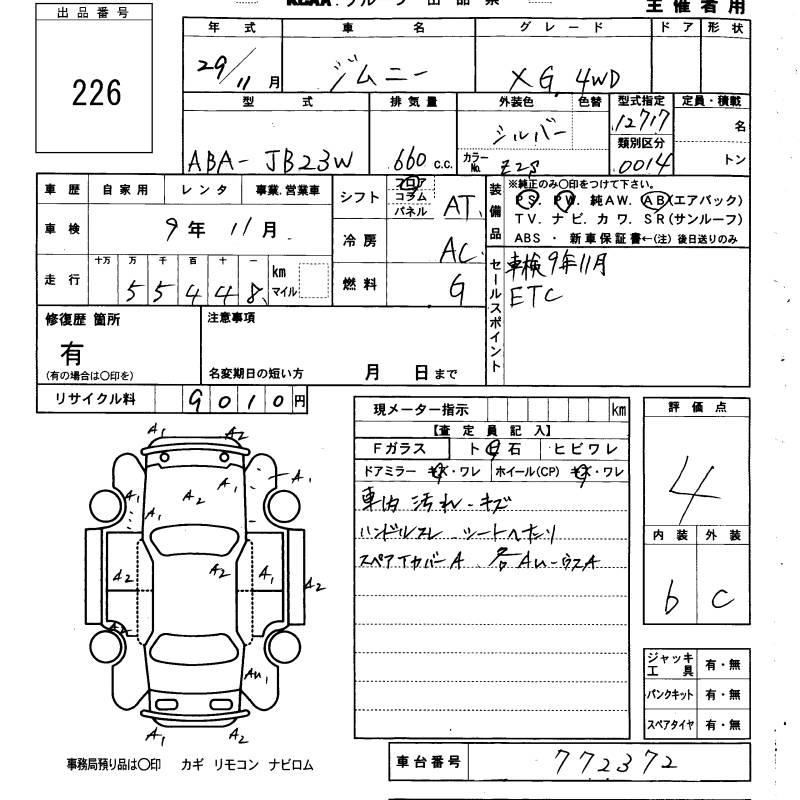 KCAA グループ 出品票
主催者用
出品番号
226
年式 車名 グレード ドア 形状
29/11月 ジムニー XG 4WD
型式 排気量 外装色 色替 型式指定 定員・積載
ABA-JB23W 660 c.c. シルバー カラーNo. Z2S 12717 名
類別区分
0014 トン
車歴 自家用 レンタ 事業.営業車
車検 9年11月
走行 十万 万 千 百 十 一 km マイル
55448
シフト フロア コラム パネル AT
冷房 AC
燃料 G
装備品
※純正のみ○印をつけて下さい。
PS. PW. 純AW. AB(エアバック)
TV. ナビ. カワ. SR(サンルーフ)
ABS ・ 新車保証書←(注) 後日送りのみ
セールスポイント
車検9年11月
ETC
修復歴 箇所
有
(有の場合は○印を)
注意事項
名変期日の短い方 月 日まで
リサイクル料 9010円
現メーター指示 km
【査定員記入】
Fガラス ト 石 ヒビワレ
ドアミラー キズ・ワレ ホイール(CP) キズ・ワレ
車内 汚れ・キズ
ハンドルスレ シートヘタリ
スペアイヤカバーA 各AU-ウスA
評価点
4
内装 外装
b C
ジャッキ工具 有・無
パンクキット 有・無
スペアタイヤ 有・無
A1 A2
A1 A2 A1 A1
A1 A1
A2 A2 A1 A2
A2
AU1
A1 A2
事務局預り品は○印 カギ リモコン ナビロム
車台番号 772372